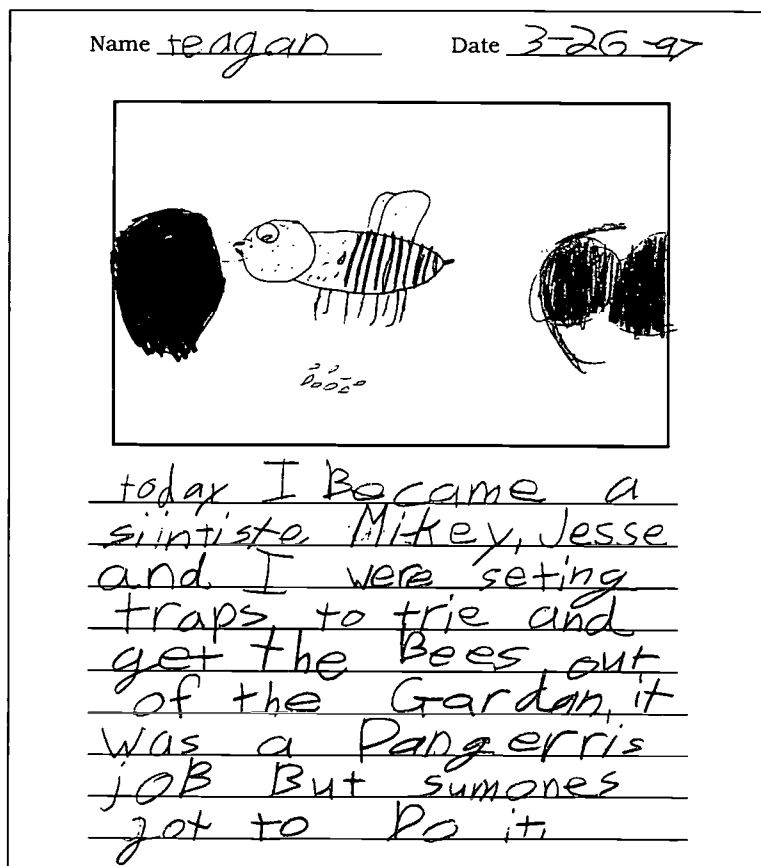 Name teagan Date 3-26-97
today I Became a
siintiste Mikey, Jesse
and I were seting
traps to trie and
get the Bees out
of the Gardan, it
was a Dangerris
joB But sumones
got to Do it.